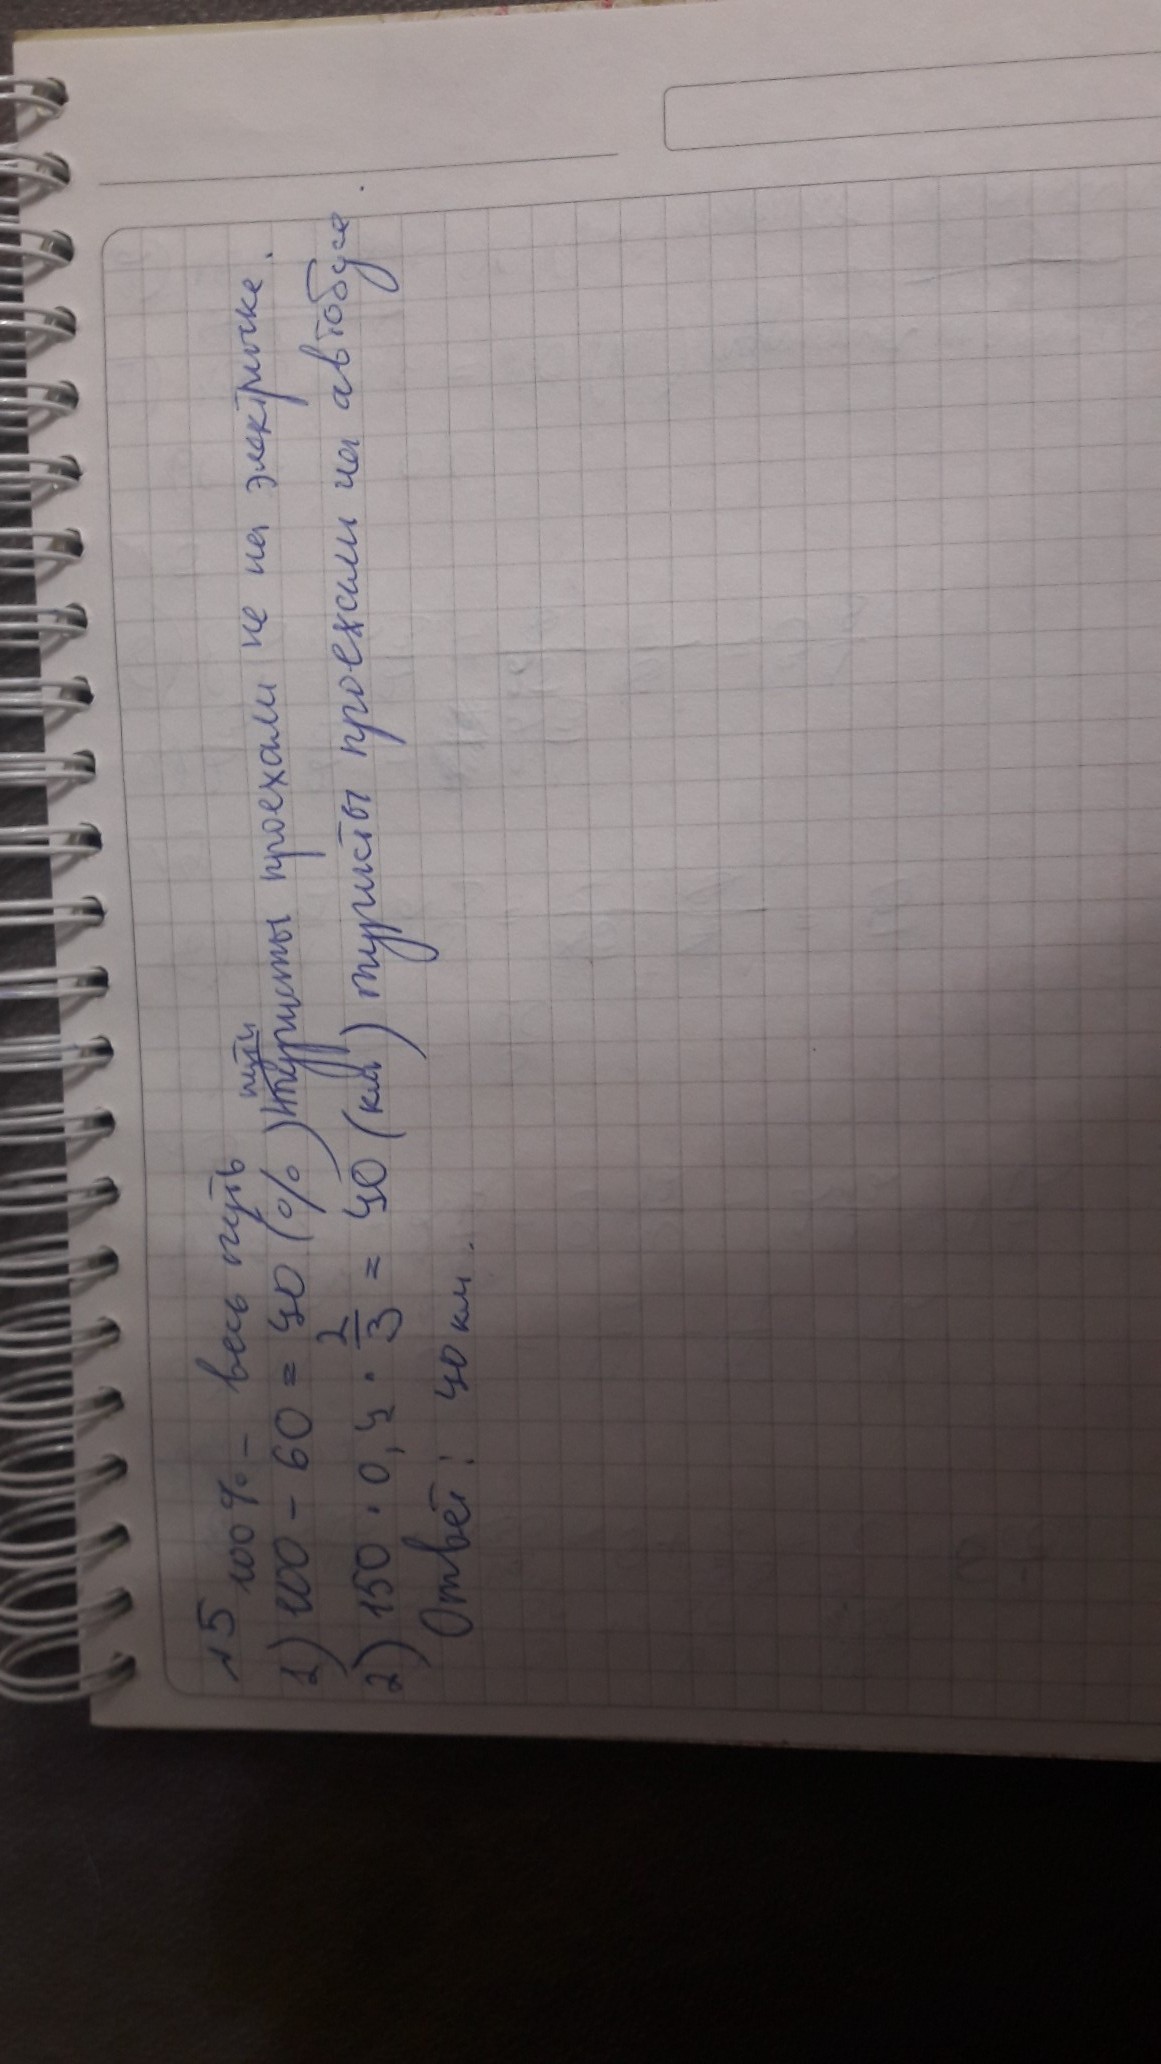 №5 100% - весь путь
1) 100 - 60 = 40 (%) пути туристы проехали не на электричке.
2) 150 · 0,4 · 2/3 = 40 (км) туристы проехали на автобусе.
Ответ: 40 км.